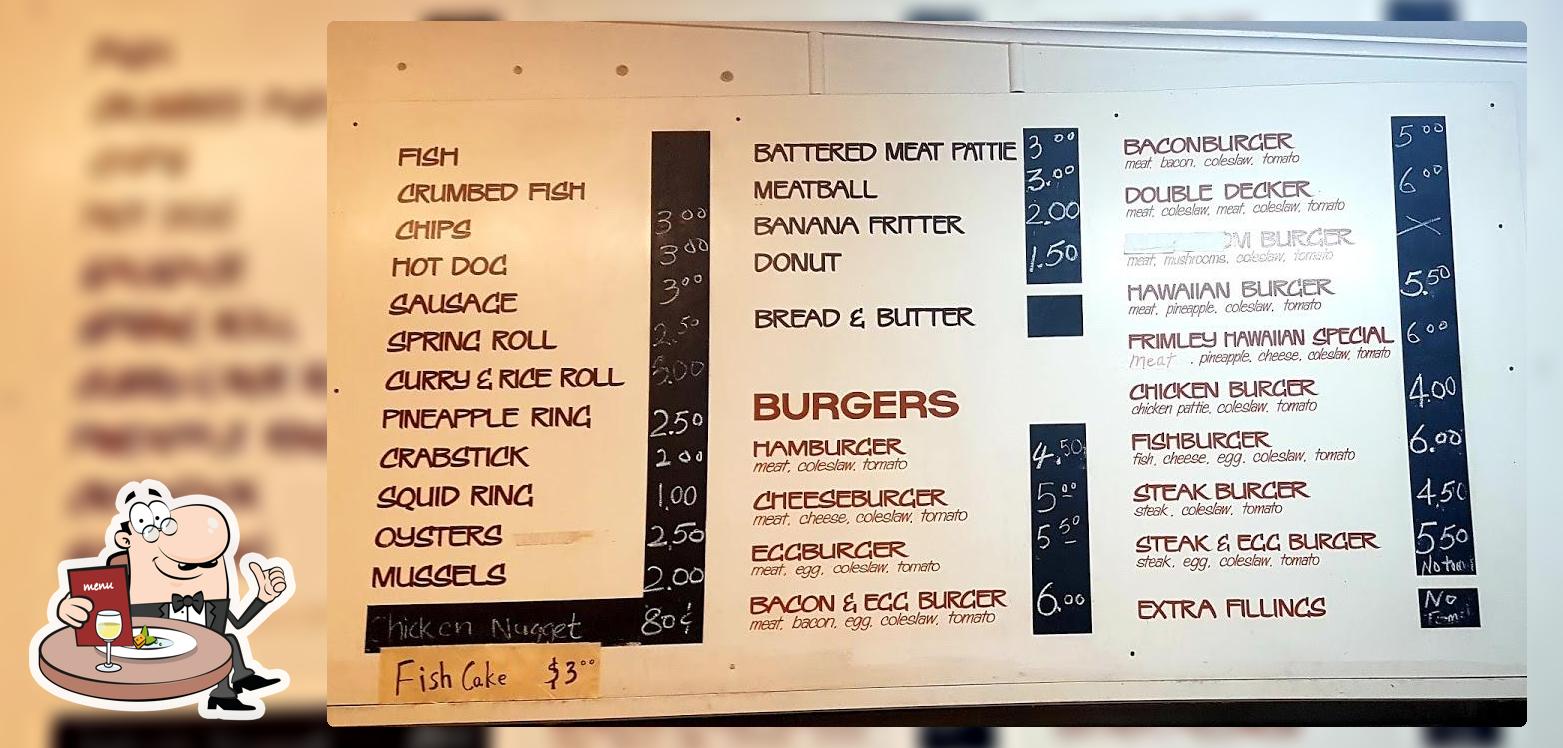 FISH
CRUMBED FISH
CHIPS 3 00
HOT DOG 3 00
SAUSAGE 3 00
SPRING ROLL 2.50
CURRY & RICE ROLL 5.00
PINEAPPLE RING 2.50
CRABSTICK 2 00
SQUID RING 1.00
OYSTERS 2.50
MUSSELS 2.00
Chicken Nugget 80¢
Fish Cake $3 00
BATTERED MEAT PATTIE 3 00
MEATBALL 3.00
BANANA FRITTER 2.00
DONUT 1.50
BREAD & BUTTER
BURGERS
HAMBURGER 4.50
meat, coleslaw, tomato
CHEESEBURGER 5 00
meat, cheese, coleslaw, tomato
EGGBURGER 5 50
meat, egg, coleslaw, tomato
BACON & EGG BURGER 6.00
meat, bacon, egg, coleslaw, tomato
BACONBURGER 5 00
meat, bacon, coleslaw, tomato
DOUBLE DECKER 6 00
meat, coleslaw, meat, coleslaw, tomato
OM BURGER X
meat, mushrooms, coleslaw, tomato
HAWAIIAN BURGER 5.50
meat, pineapple, coleslaw, tomato
FRIMLEY HAWAIIAN SPECIAL 6 00
meat, pineapple, cheese, coleslaw, tomato
CHICKEN BURGER 4.00
chicken pattie, coleslaw, tomato
FISHBURGER 6.00
fish, cheese, egg, coleslaw, tomato
STEAK BURGER 4.50
steak, coleslaw, tomato
STEAK & EGG BURGER 5.50
steak, egg, coleslaw, tomato
EXTRA FILLINGS No
menu